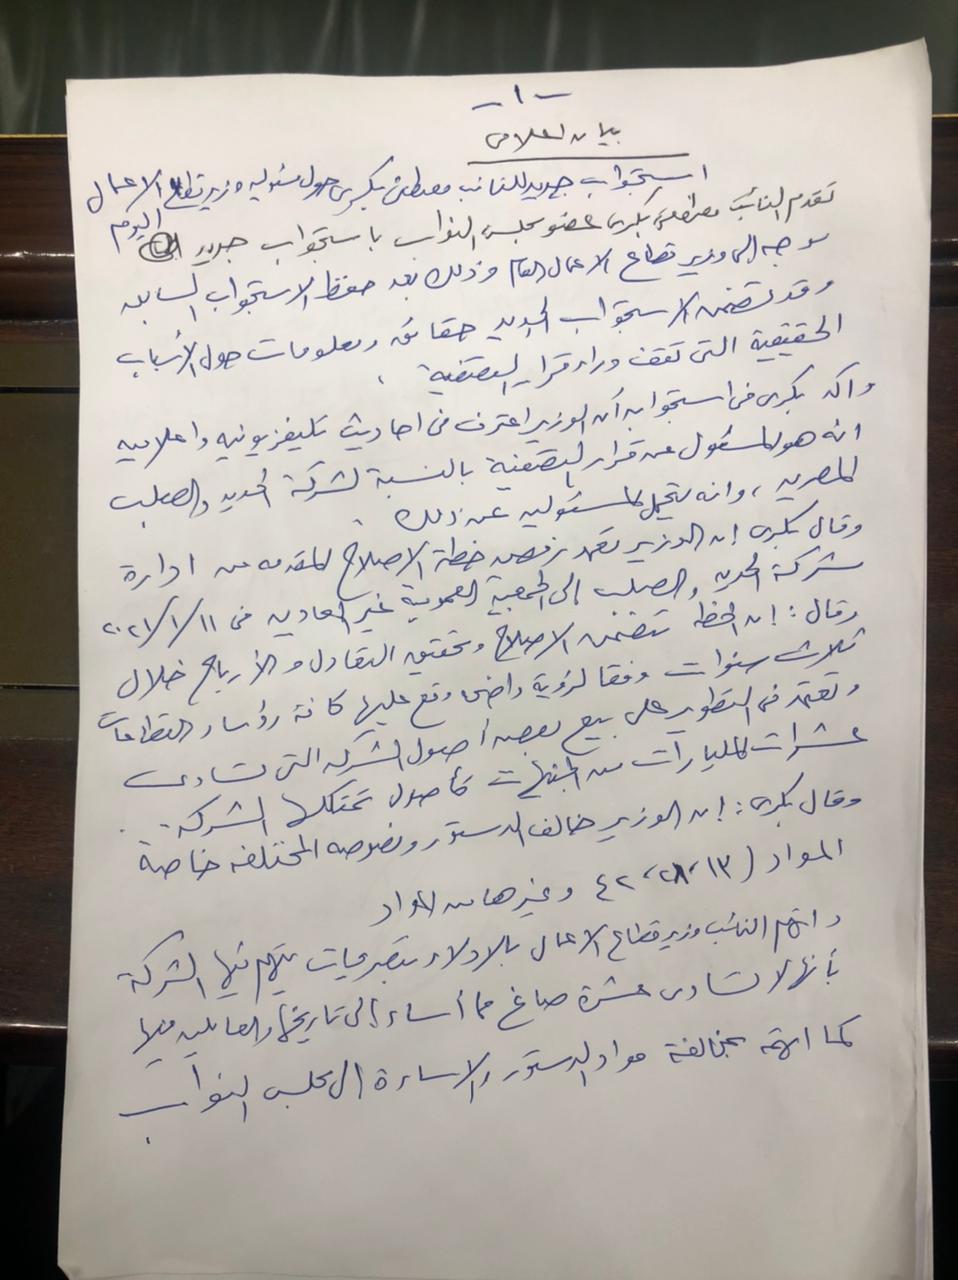 - ١ -
بيان اعلامى
استجواب جديد للنائب مصطفى بكرى حول مسئولية وزير قطاع الاعمال
تقدم النائب مصطفى بكرى عضو مجلس النواب باستجواب جديد اليوم
موجه الى وزير قطاع الاعمال العام وذلك بعد حفظ الاستجواب السابق
وقد تضمن الاستجواب الجديد حقائق ومعلومات حول الأسباب
الحقيقية التى تقف وراء قرار التصفية .
واكد بكرى فى استجوابه أن الوزير اعترف فى احاديث تليفزيونيه واعلاميه
انه هو المسئول عن قرار التصفية بالنسبة لشركة الحديد والصلب
المصريه ، وانه يتحمل المسئوليه عن ذلك .
وقال بكرى إن الوزير تعمد رفض خطة الاصلاح المقدمه من ادارة
شركة الحديد والصلب إلى الجمعية العمومية غير العاديه فى ٢٠٢١/١/١١
وقال : إن الخطه تتضمن الاصلاح وتحقيق التعادل والأرباح خلال
ثلاث سنوات وفقا لرؤية وقع عليها كافة رؤساء القطاعات
وتعتمد فى التطوير على بيع بعض أصول الشركه التى تساوى
عشرات المليارات من الجنيهات كأصول تمتلكها الشركه .
وقال بكرى : إن الوزير خالف الدستور ونصوصه المختلفه خاصة
المواد ( ١٣ ، ٢٨ ، ٤٢ وغيرها من المواد
واتهم النائب وزير قطاع الاعمال بالادلاء بتصريحات يتهم فيها الشركة
بأنها لا تساوى عشرة صاغ مما أساء إلى تاريخها والعاملين فيها
كما اتهمه بمخالفة مواد الدستور والاساءة الى مجلس النواب